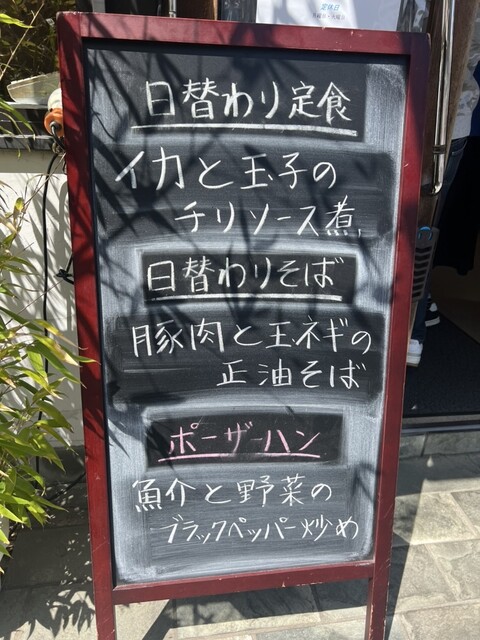 定休日
日替わり定食
イカと玉子の
チリソース煮
日替わりそば
豚肉と玉ネギの
正油そば
ポーザーハン
魚介と野菜の
ブラックペッパー炒め